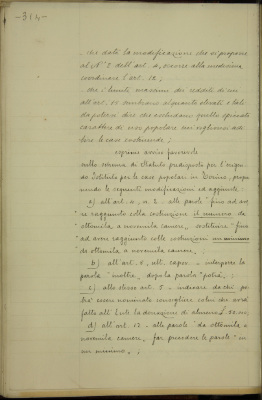 -314-
che data la modificazione che si propone
al N° 2 dell'art. 4, occorre alla medesima
coordinare l'art. 12;
che i limiti massimi dei redditi di cui
all'art. 15 sembrano alquanto elevati e tali
da potersi dire che escludano quello speciale
carattere di vere popolare
le case costruende;
esprime avviso favorevole
sullo schema di Statuto predisposto per l'erigendo
Istituto per le case popolari in Torino, proponendo
le seguenti modificazioni ed aggiunte:
a) all'art. 4, n. 2 - alle parole "fino ad avere
raggiunto colla costruzione il numero da
ottomila a novemila camere," sostituire "fino
ad avere raggiunto colle costruzioni un numero
da ottomila a novemila camere";
b) all'art. 5, ult. capov. - interporre la
parola "inoltre" dopo la parola "potrà";
c) allo stesso art. 5 - indicare da chi potrà
essere nominato consigliere colui che avrà
fatto all'Ist. la donazione di almeno L.
d) all'art. 12 - alle parole "da ottomila a
novemila camere" far precedere le parole "in
un numero";